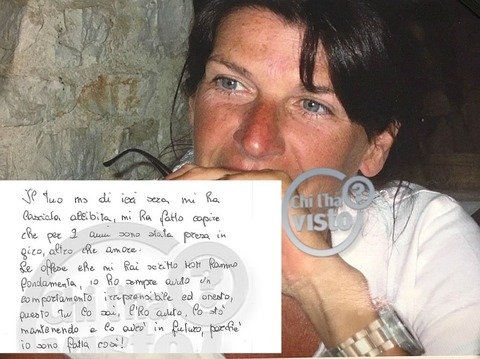 Chi l'ha
visto?
Il tuo ms di ieri sera mi ha
lasciata allibita, mi ha fatto capire
che per 7 anni sono stata presa in
giro, altro che amore.
Le offese che mi hai scritto non hanno
fondamento, io ho sempre avuto un
comportamento irreprensibile ed onesto,
questo tu lo sai, l'ho avuto, lo sto
mantenendo e lo avrò in futuro, perchè
io sono fatta così!